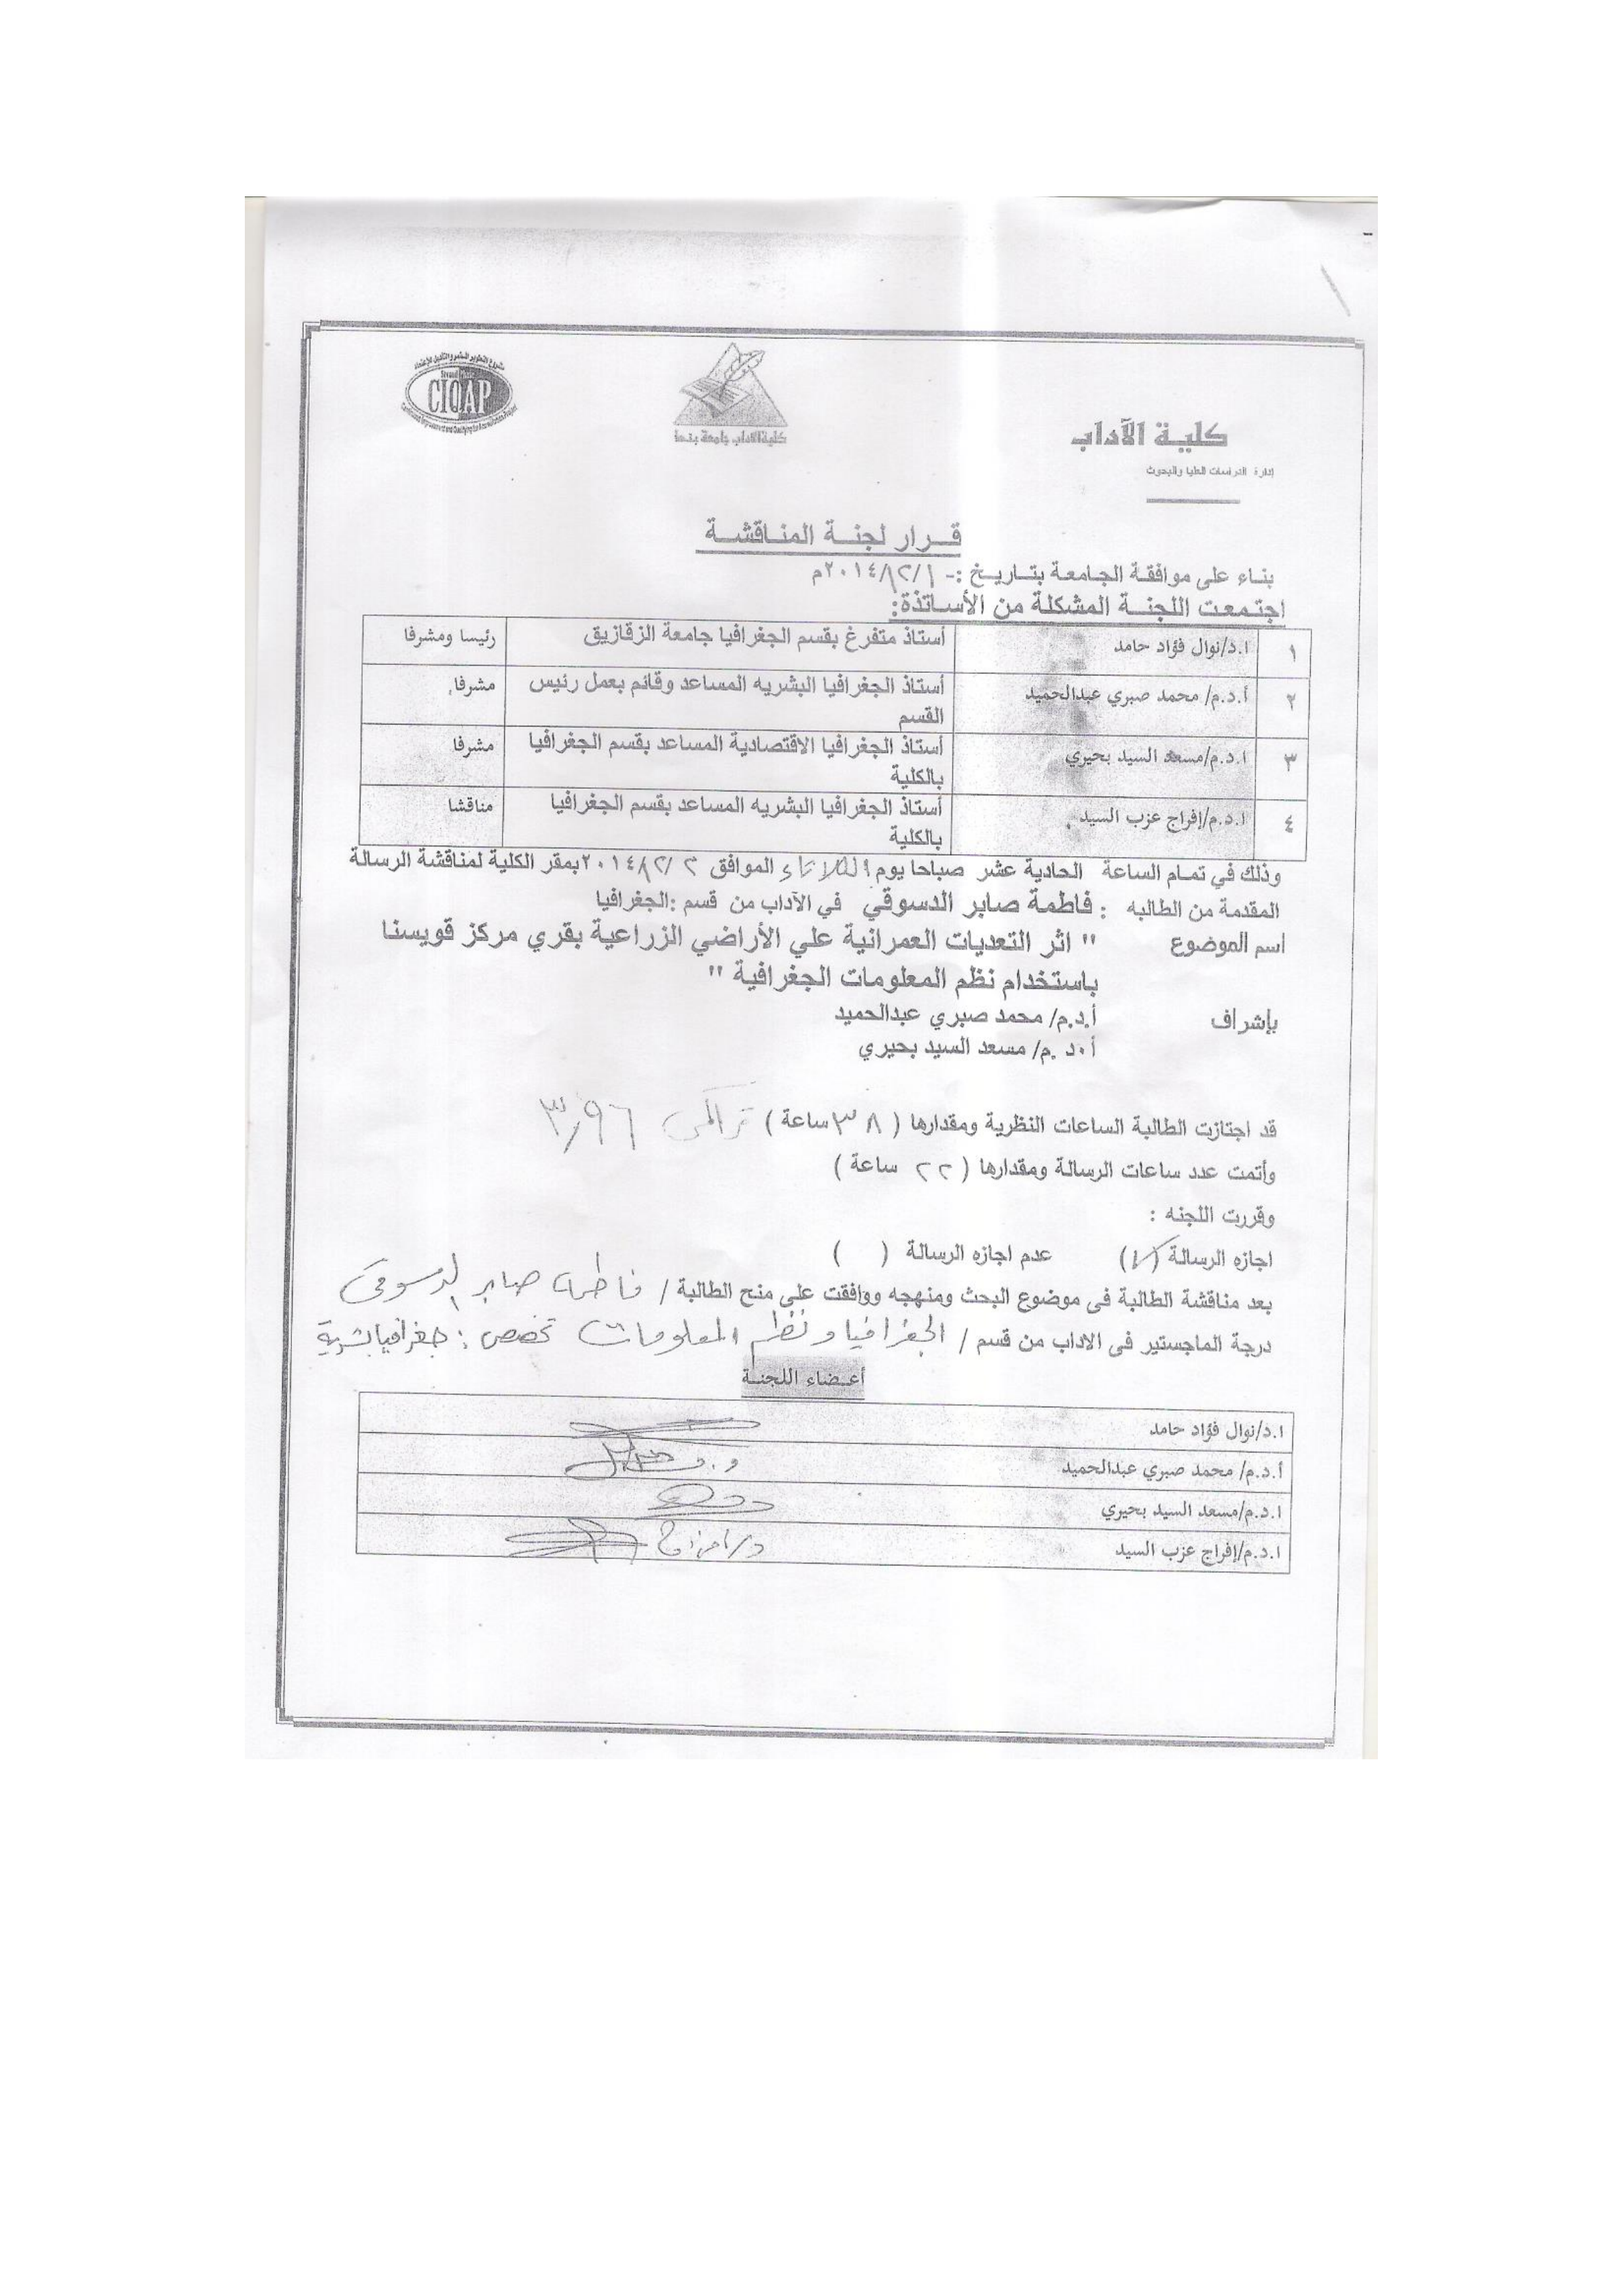 كلية الآداب
إدارة الدراسات العليا والبحوث
كلية الآداب جامعة بنها
CIQAP
قرار لجنة المناقشة
بناء على موافقة الجامعة بتاريخ :- ٢٠١٤/١٢/١م
اجتمعت اللجنة المشكلة من الأساتذة:
١ ا.د/نوال فؤاد حامد أستاذ متفرغ بقسم الجغرافيا جامعة الزقازيق رئيسا ومشرفا
٢ أ.د.م/ محمد صبري عبدالحميد أستاذ الجغرافيا البشريه المساعد وقائم بعمل رئيس مشرفا
القسم
٣ ا.د.م/مسعد السيد بحيري أستاذ الجغرافيا الاقتصادية المساعد بقسم الجغرافيا مشرفا
بالكلية
٤ ا.د.م/إفراج عزب السيد أستاذ الجغرافيا البشريه المساعد بقسم الجغرافيا مناقشا
بالكلية
وذلك في تمام الساعة الحادية عشر صباحا يوم الثلاثاء الموافق ٢٠١٤/١٢/٢ بمقر الكلية لمناقشة الرسالة
المقدمة من الطالبه : فاطمة صابر الدسوقي في الآداب من قسم :الجغرافيا
اسم الموضوع " اثر التعديات العمرانية علي الأراضي الزراعية بقري مركز قويسنا
باستخدام نظم المعلومات الجغرافية "
بإشراف أ.د.م/ محمد صبري عبدالحميد
أ.د.م/ مسعد السيد بحيري
قد اجتازت الطالبة الساعات النظرية ومقدارها ( ٣٨ ساعة ) تراكمى ٣,٩٦
وأتمت عدد ساعات الرسالة ومقدارها ( ٢٢ ساعة )
وقررت اللجنه :
اجازه الرسالة (✓) عدم اجازه الرسالة ( )
بعد مناقشة الطالبة فى موضوع البحث ومنهجه ووافقت على منح الطالبة / فاطمة صابر الدسوقى
درجة الماجستير فى الاداب من قسم / الجغرافيا ونظم المعلومات تخصص : جغرافيا بشرية
أعضاء اللجنة
ا.د/نوال فؤاد حامد
أ.د.م/ محمد صبري عبدالحميد
ا.د.م/مسعد السيد بحيري
ا.د.م/إفراج عزب السيد